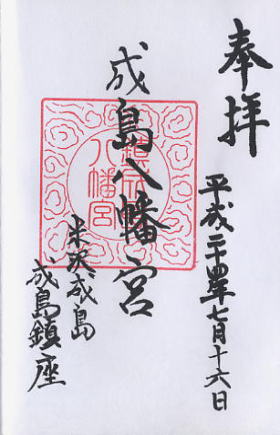 奉拝
平成二十四年七月十六日
成島八幡宮
米沢成島
成島鎮座
八幡宮